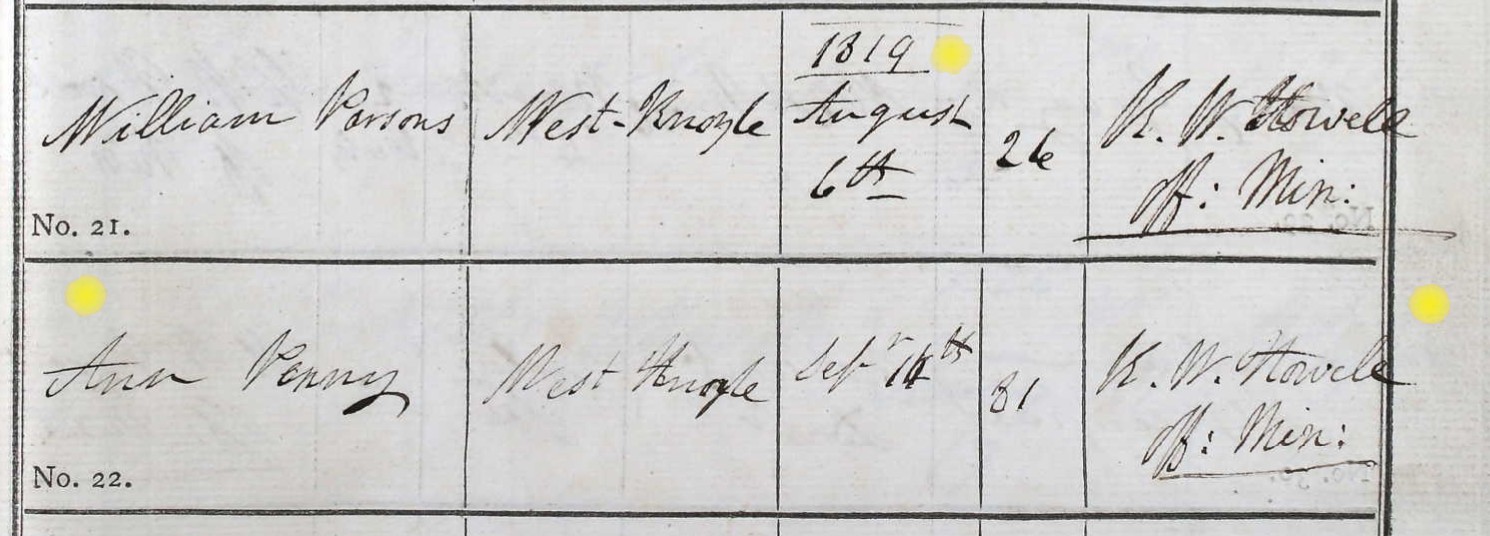 William Parsons
West-Knoyle
1819
August
6th
26
K. W. Howell
off: Min:
No. 21.
Ann Penny
West Knoyle
Sepr 14th
81
K. W. Howell
off: Min:
No. 22.